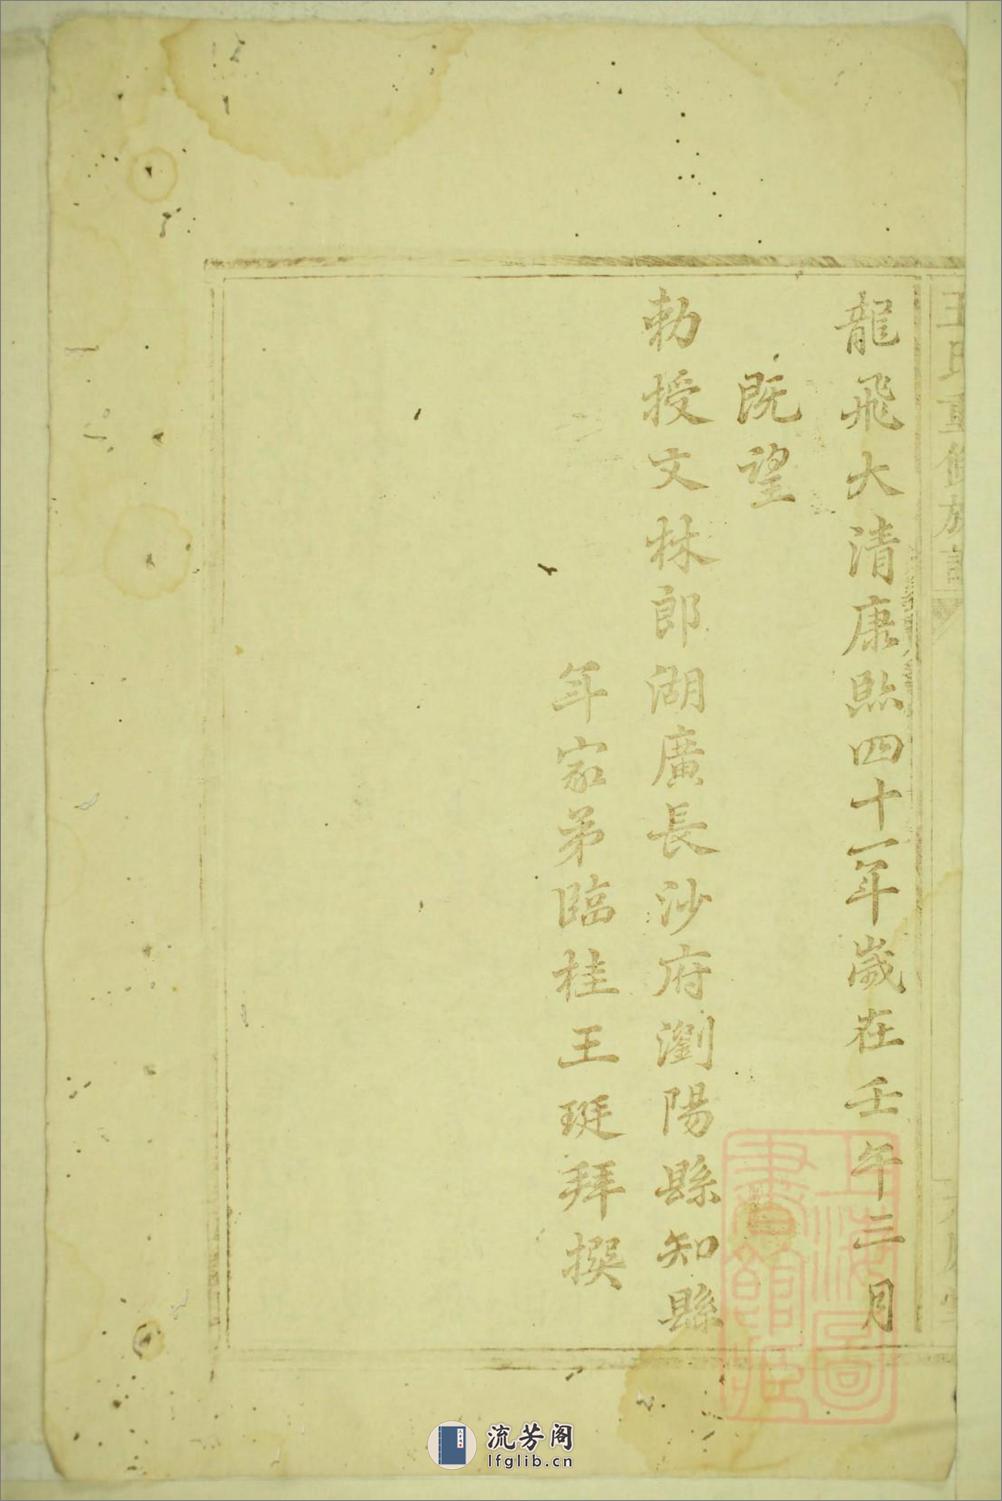 王氏重修族譜
龍飛大清康熙四十一年歲在壬午三月
既望
勅授文林郎湖廣長沙府瀏陽縣知縣
年家弟臨桂王珽拜撰
上海圖書館藏
流芳阁
lfglib.cn